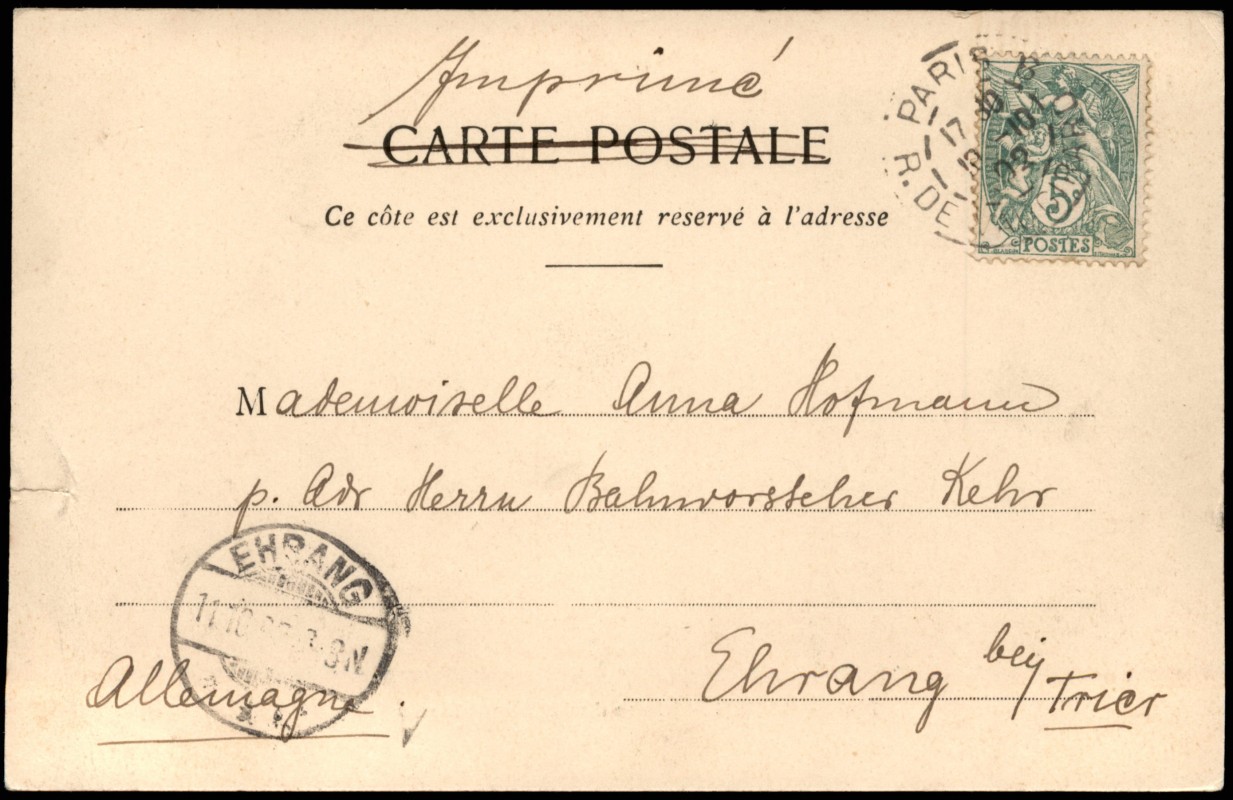 Imprimé
CARTE POSTALE
Ce côte est exclusivement reservé à l'adresse
PARIS
R. DE
5
POSTES
Mademoiselle Anna Hofmann
p. Adr Herrn Bahnvorsteher Kehr
EHRANG
11.10
Ehrang bey Trier
Allemagne.